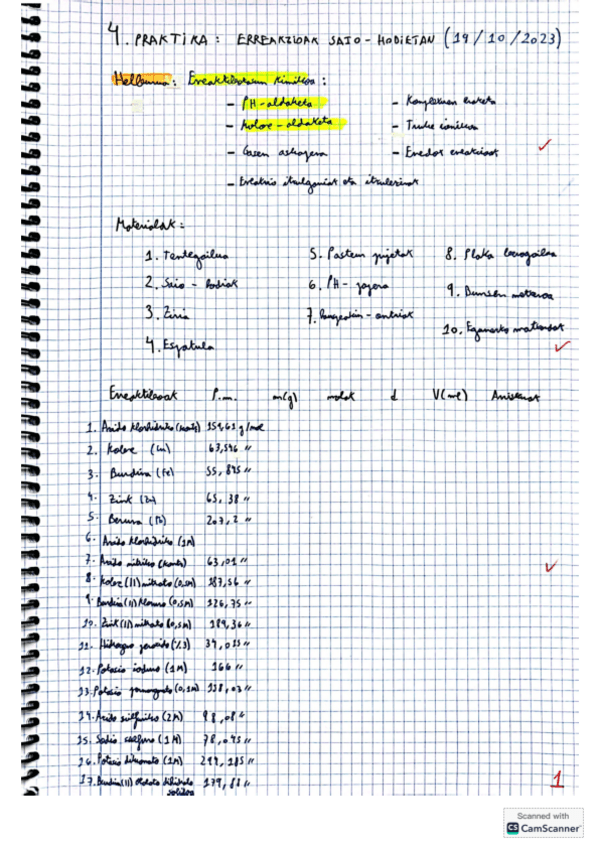 4. PRAKTIKA: ERREAKZIOAK SAIO-HODIETAN (19/10/2023)
Helburua: Erreaktibotasun kimikoa:
- PH-aldaketa
- Konplexuen eraketa
- Kolore-aldaketa
- Truke ionikoa
- Gasen askapena
- Erredox erreakzioak
- Erreakzio itzulgarriak eta itzulezinak
Materialak:
1. Tentegailua
5. Pasteur pipetak
8. Plaka berogailua
2. Saio-hodiak
6. PH-papera
9. Bunsen metxeroa
3. Ziria
7.
10. Egurrezko matxardak
4. Espatula
Erreaktiboak P.m. m(g) molak d V(ml) Arriskuak
1. Azido klorhidriko (kontz) g/mol
2. Kobre (Cu) 63,546 "
3. Burdina (Fe) 55,845 "
4. Zink (Zn) 65,38 "
5. Beruna (Pb) 207,2 "
6. Azido klorhidriko (1M)
7. Azido nitriko (kontz) 63,01 "
8. Kobre (II) nitrato (0,5M) 187,56 "
9. Burdin (II) kloruro (0,5M) 126,75 "
10. Zink (II) nitrato (0,5M) 189,36 "
11. Hidrogeno peroxido (%3) 34, "
12. Potasio ioduro (1M) 166 "
13. Potasio permanganato (0,1M) 158,03 "
14. Azido sulfuriko (2M) 98,08 "
15. Sodio sulfuro (1M) 78,045 "
16. Potasio dikromato (1M) 294,185 "
17. Burdin (II) oxalato dihidrato 179,88 "
solidoa
1
Scanned with
CS CamScanner